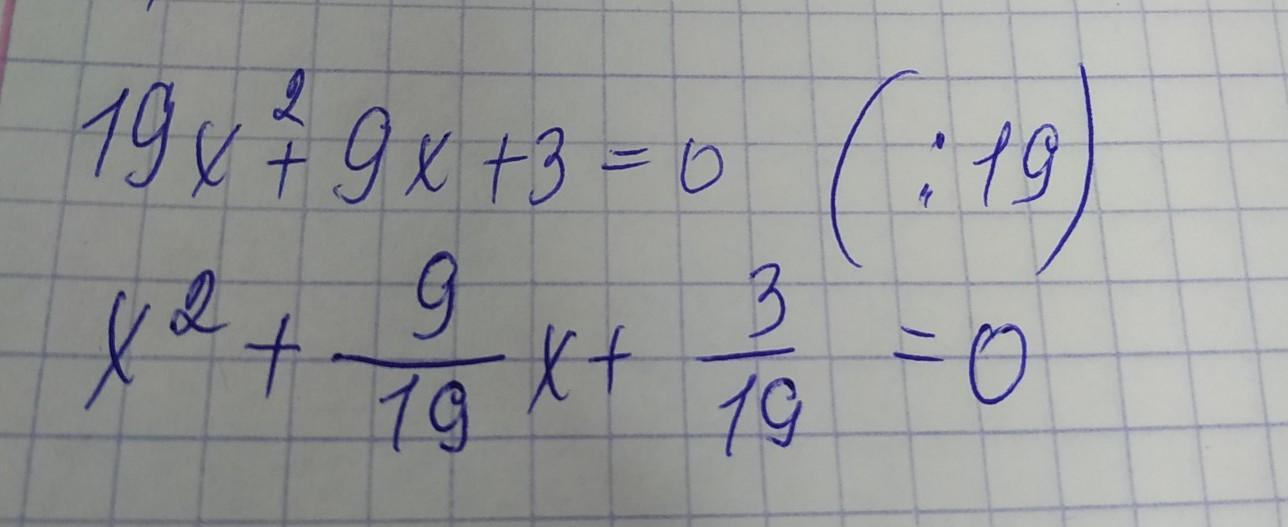 19x² + 9x + 3 = 0 (:19)
x² + 9/19 x + 3/19 = 0